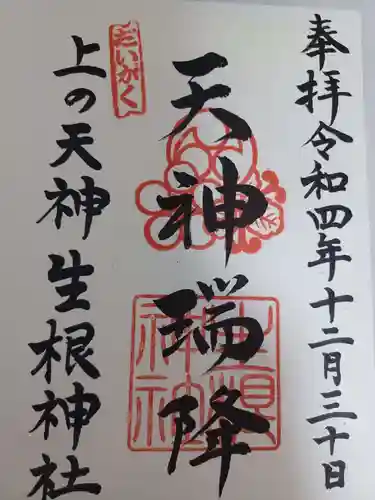 奉拝令和四年十二月三十日
天神瑞降
上の天神生根神社
だいがく
生根神社